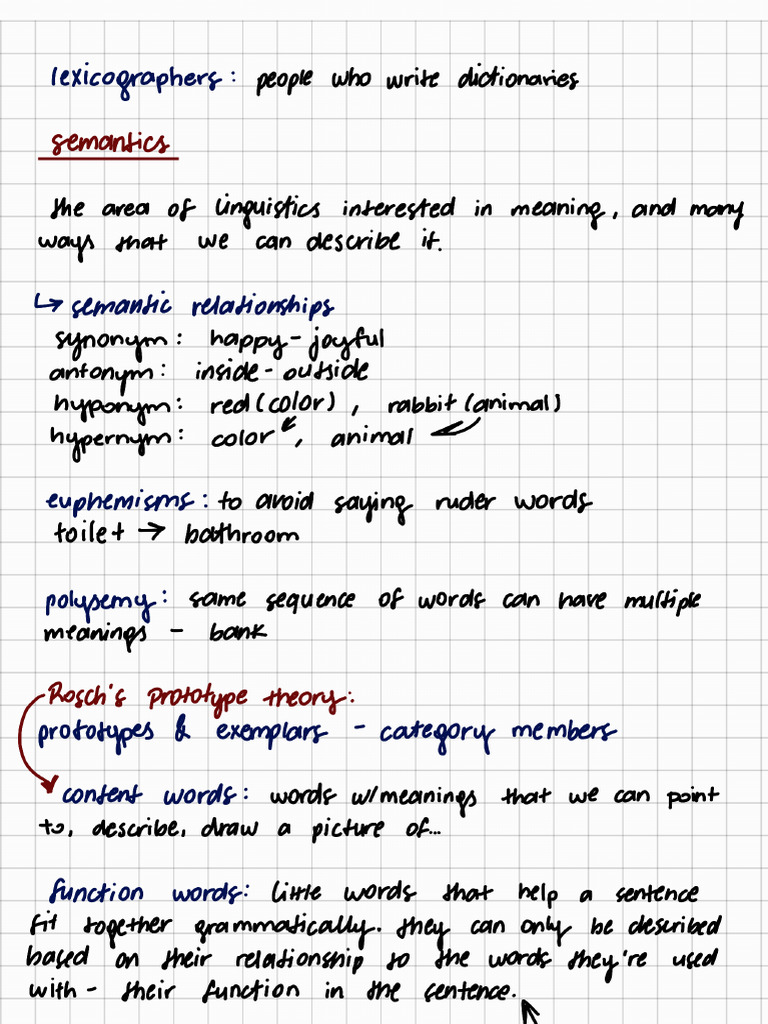 lexicographers: people who write dictionaries
semantics
the area of linguistics interested in meaning, and many
ways that we can describe it.
↳ semantic relationships
synonym: happy - joyful
antonym: inside - outside
hyponym: red (color), rabbit (animal)
hypernym: color, animal
euphemisms: to avoid saying ruder words
toilet → bathroom
polysemy: same sequence of words can have multiple
meanings - bank
Rosch's prototype theory:
prototypes & exemplars - category members
content words: words w/meanings that we can point
to, describe, draw a picture of...
function words: little words that help a sentence
fit together grammatically. they can only be described
based on their relationship to the words they're used
with - their function in the sentence.